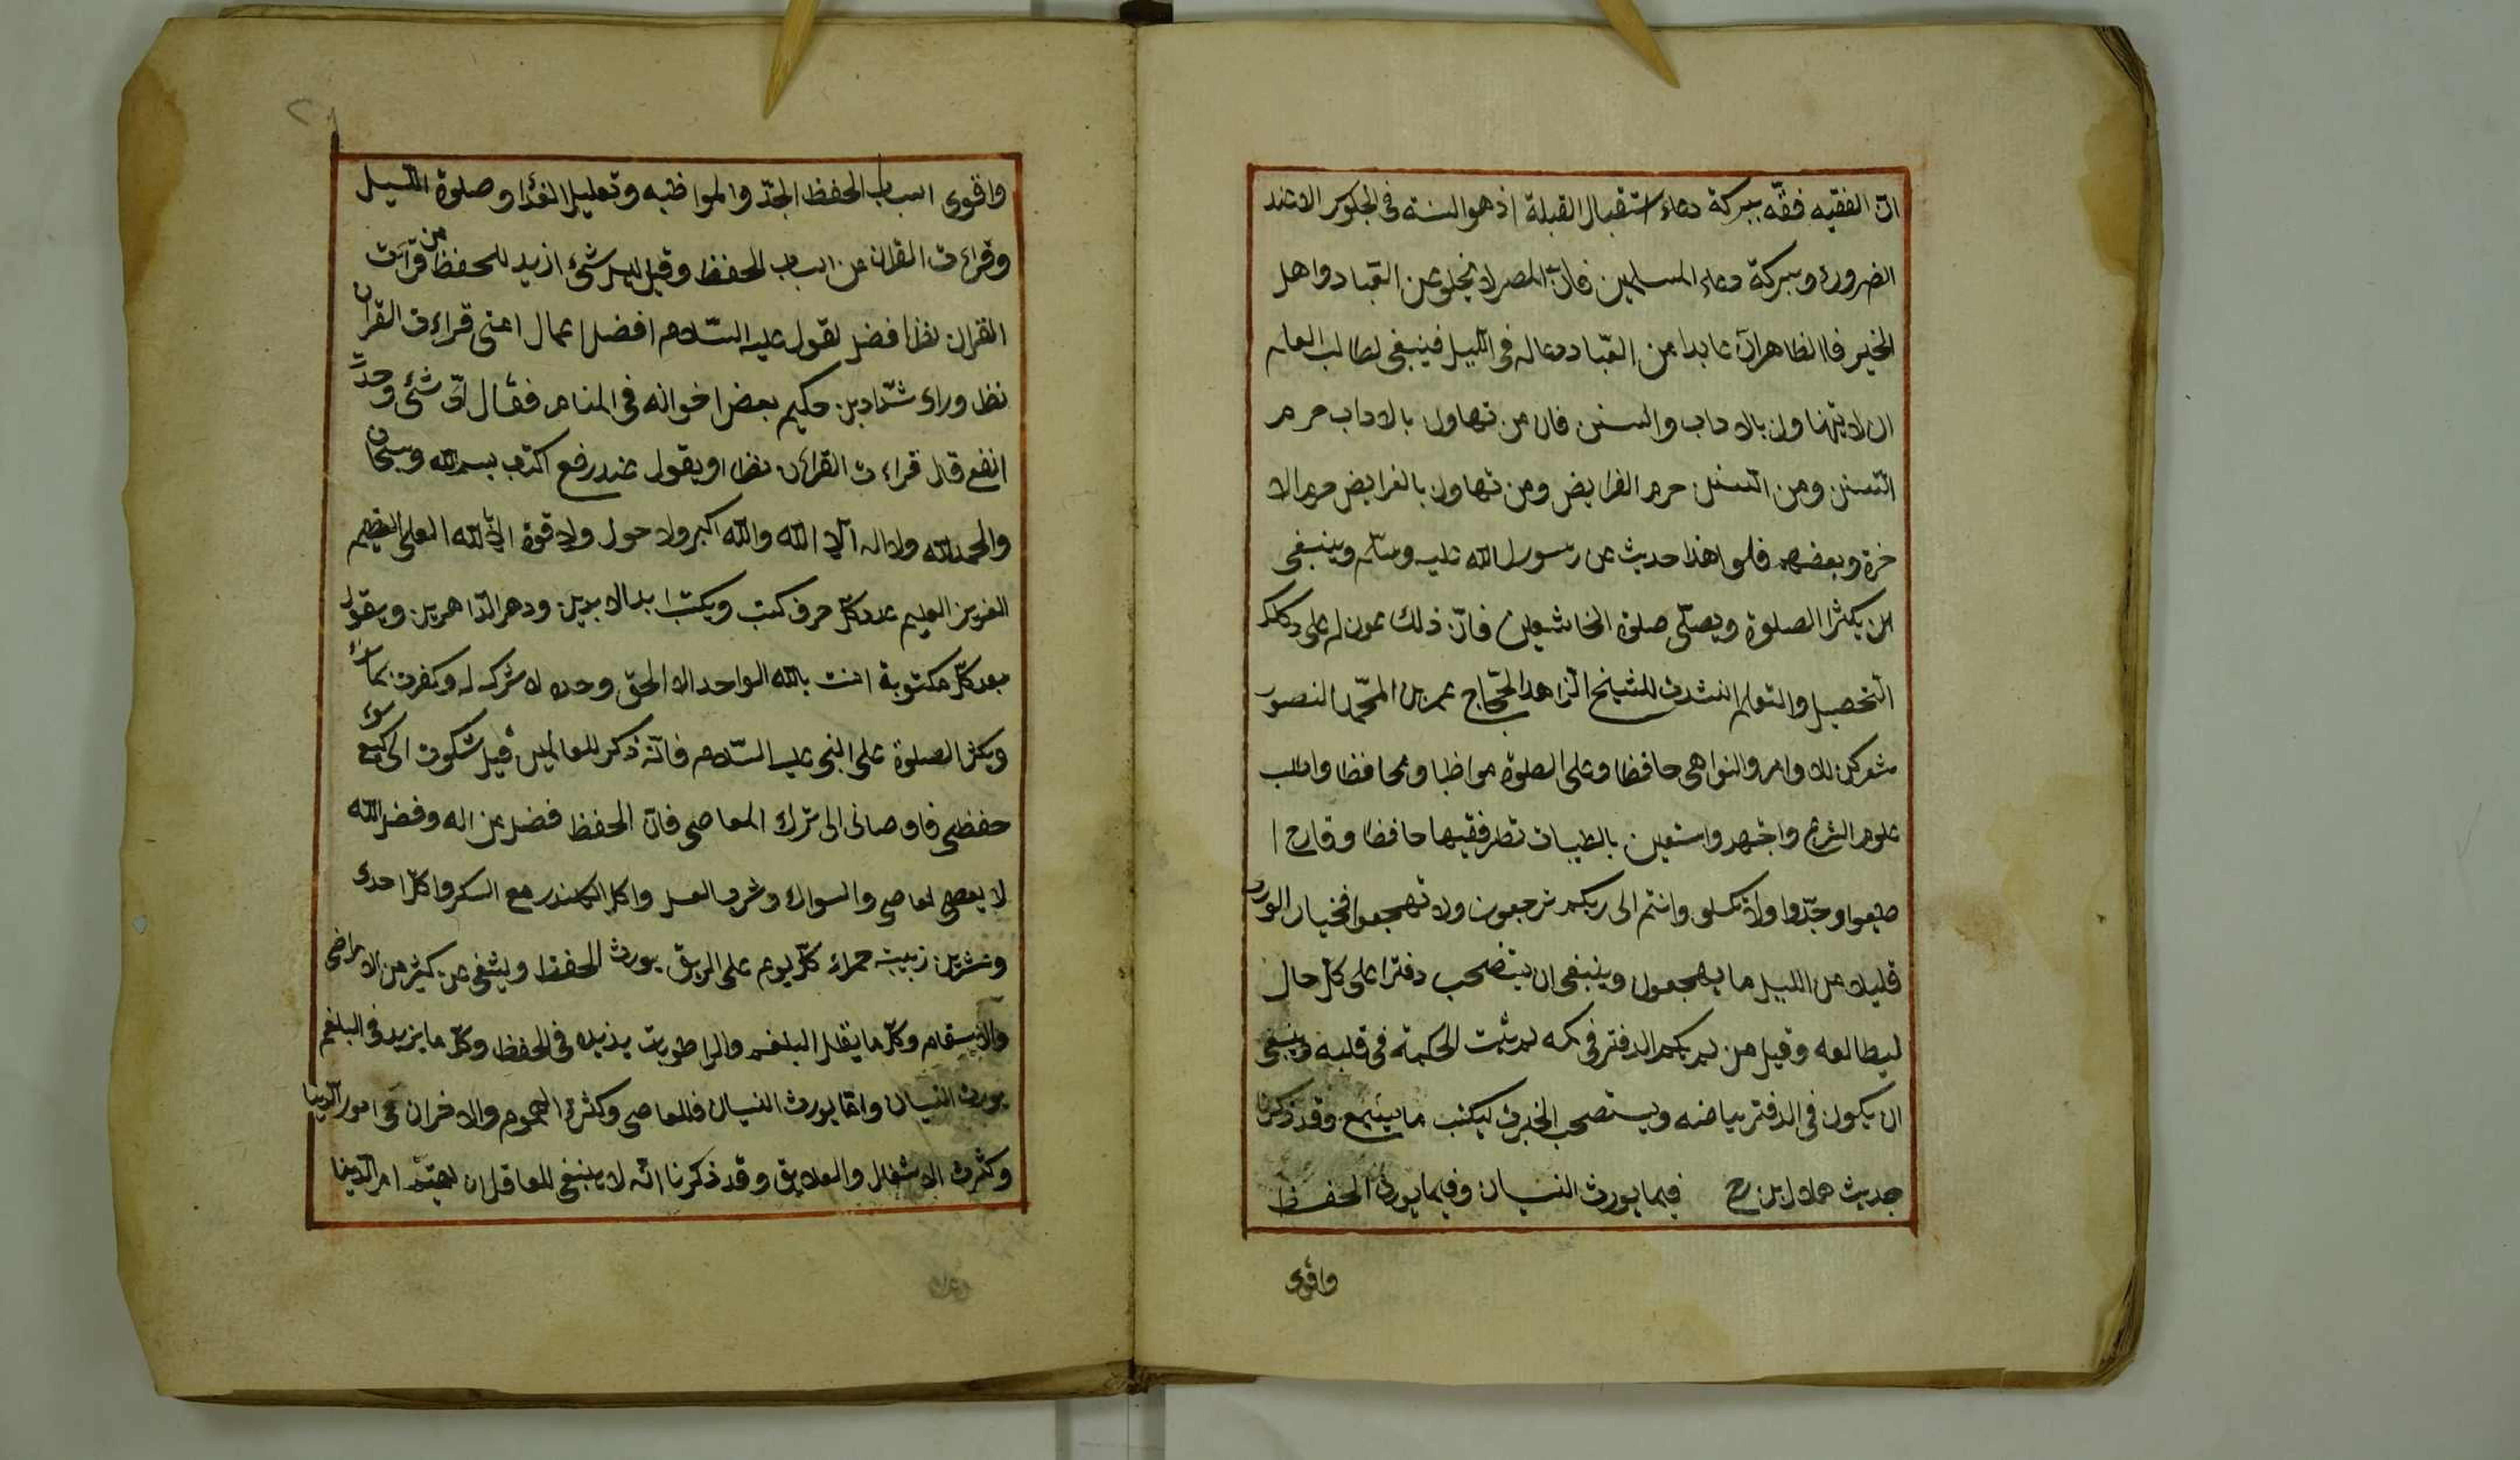 انّ الفقيه فقّه ببركة دعاء استقبال القبلة اذ هو السنة فى الجلوس الا عند
الضرورة وببركة دعاء المسلمين فانّ المصر لا يخلو عن العباد واهل
الخير فاالظاهر انّ عابدا من العبّاد دعا له فى الليل فينبغى لطالب العلم
ان لا يتهاون بالاداب والسنن فان من تهاون بالاداب حرم
السنن ومن السنن حرم الفرايض ومن تهاون بالفرايض حرم الا
خرة وبعضهم قلوا هذا حديث عن رسول الله عليه وسلم وينبغى
ان يكثر الصلوة ويصلّى صلوة الخاشعين فانّ ذلك عون له على
التحصيل والتعلم انشدت للشيخ الزاهد الحجّاج عمر بن المحمّد النصور
شعر كن للاوامر والنواهى حافظا وعلى الصلوة مواظبا ومحافظا واطلب
علوم الشرع واجتهد واستعين بالطيبات تطر فقيها حافظا
وجدّوا ولا تكسلو وانتم الى ربكم ترجعون ولا تهجعوا فخيار الورى
قليلا من الليل ما يهجعون وينبغى ان يتضحب دفترا على كل حال
ليطالعه وقيل من لم يكن الدفتر فى كمه لم يثبت الحكمة فى قلبه وينبغى
ان يكون فى الدفتر بياضه ويستصحب الخبرت ليكتب ما يسمع وقد ذكرنا
حديث هملال بن فيما يورث النسيان وفيما يورث الحفظ
واقوى
واقوى اسباب الحفظ الجدّ والمواظبه وتعليل الغذا وصلوة الليل
وقراءت القران من اسباب الحفظ وقيل ليس شئ ازيد للحفظ من قرائت
القران نظرا افضل لقول عليه السّلام افضل اعمال امتى قراءت القران
نظر وراى شدّاد بن حكيم بعض اخوانه فى المنام فقال اىّ شئ وحدت
انفع قال قراءت القراءن نظرا ويقول عند رفع اكتب بسم الله وسبحان
والحمد لله ولا اله الا الله والله اكبر ولا حول ولا قوة الا بالله العلى العظيم
العزيز العليم عدد كلّ حرف كتب ويكتب ابد الابدين ودهر الدّاهرين ويقول
بعد كلّ مكتوبة امنت بالله الواحد الاحد الحق وحده لا شرك له وكفرت بما سواء
ويكثر الصلوة على النبى عليه السّلام فانّه ذكر للعالمين قيل شكوت الى وكيع سوء
حفظى فاوصانى الى ترك المعاصى فانّ الحفظ فضل من اله وفضل الله
لا يعصى لعاصى والسواك وشرب العسل واكل الكندر مع السكر واكل احدى
وعشرين زبيبة حمراء كلّ يوم على الريق يورث الحفظ ويشفى عن كثير من الامراضى
والاسقام وكلّ ما يقلل البلغم والرا طوبت يذيده فى الحفظ وكلّ ما يزيد فى البلغم
يورث النسيان وامّا يورث النسيان فللمعاصى وكثرة الهموم والاخران فى امور الدنيا
وكثرت الاشغلل والعلايق وقد ذكرنا انّه لا ينبغى للعاقل ان لهيتم امر الدّنيا